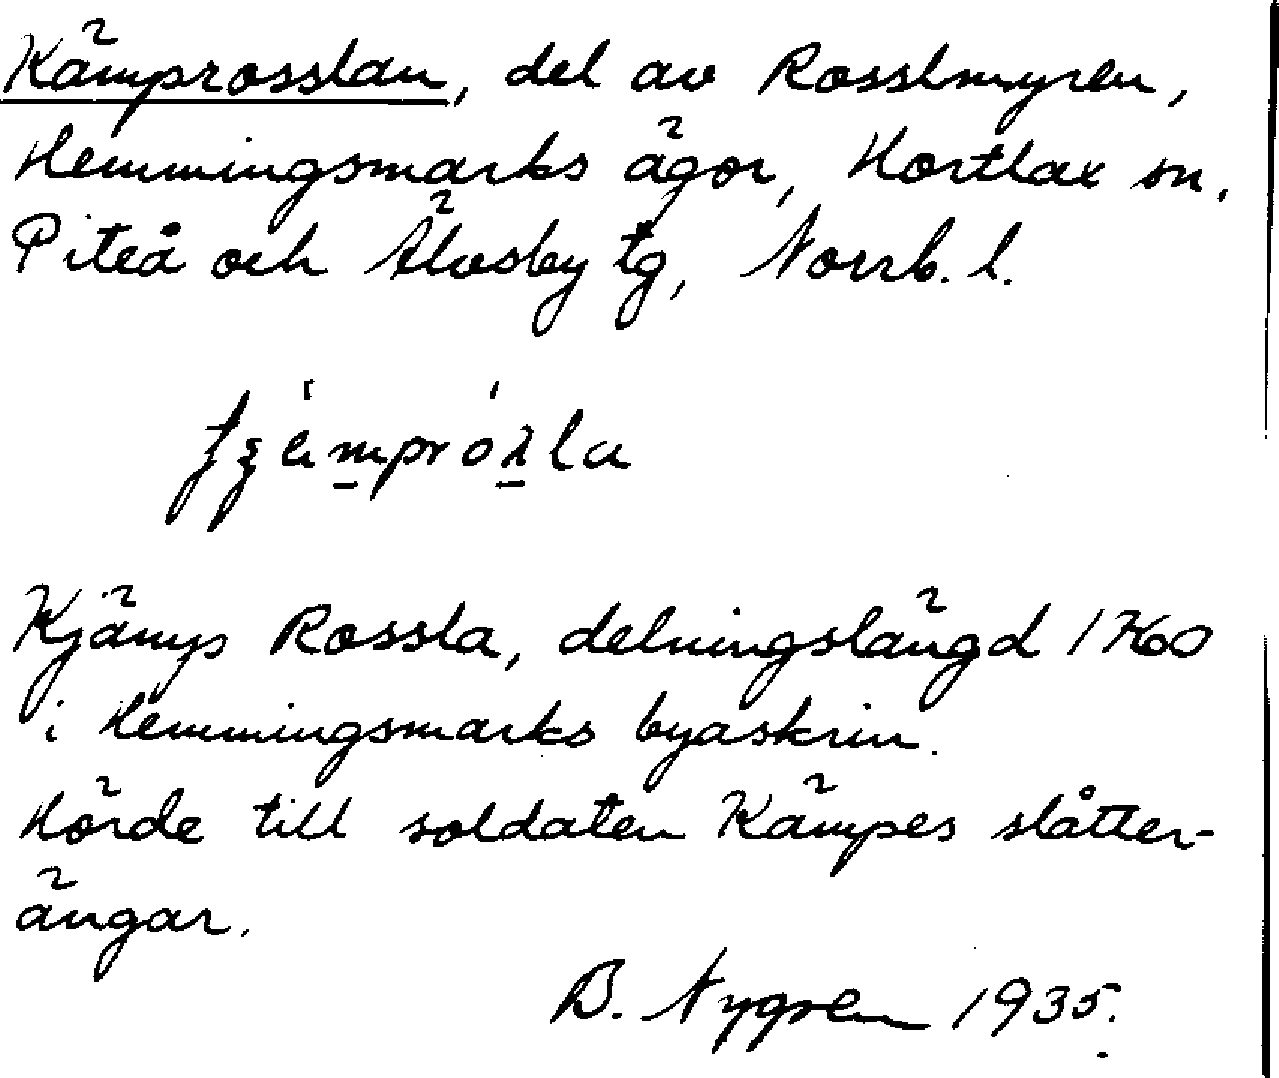 Kämprosslan, del av Rosslmyren,
Hemmingsmarks ägor, Hortlax sn.
Piteå och Älvsby tg, Norrb. l.
Kjämps Rossla, delningslängd 1760
i Hemmingsmarks byaskrin.
Hörde till soldaten Kämpes slåtter-
ängar.
B. Nygren 1935.